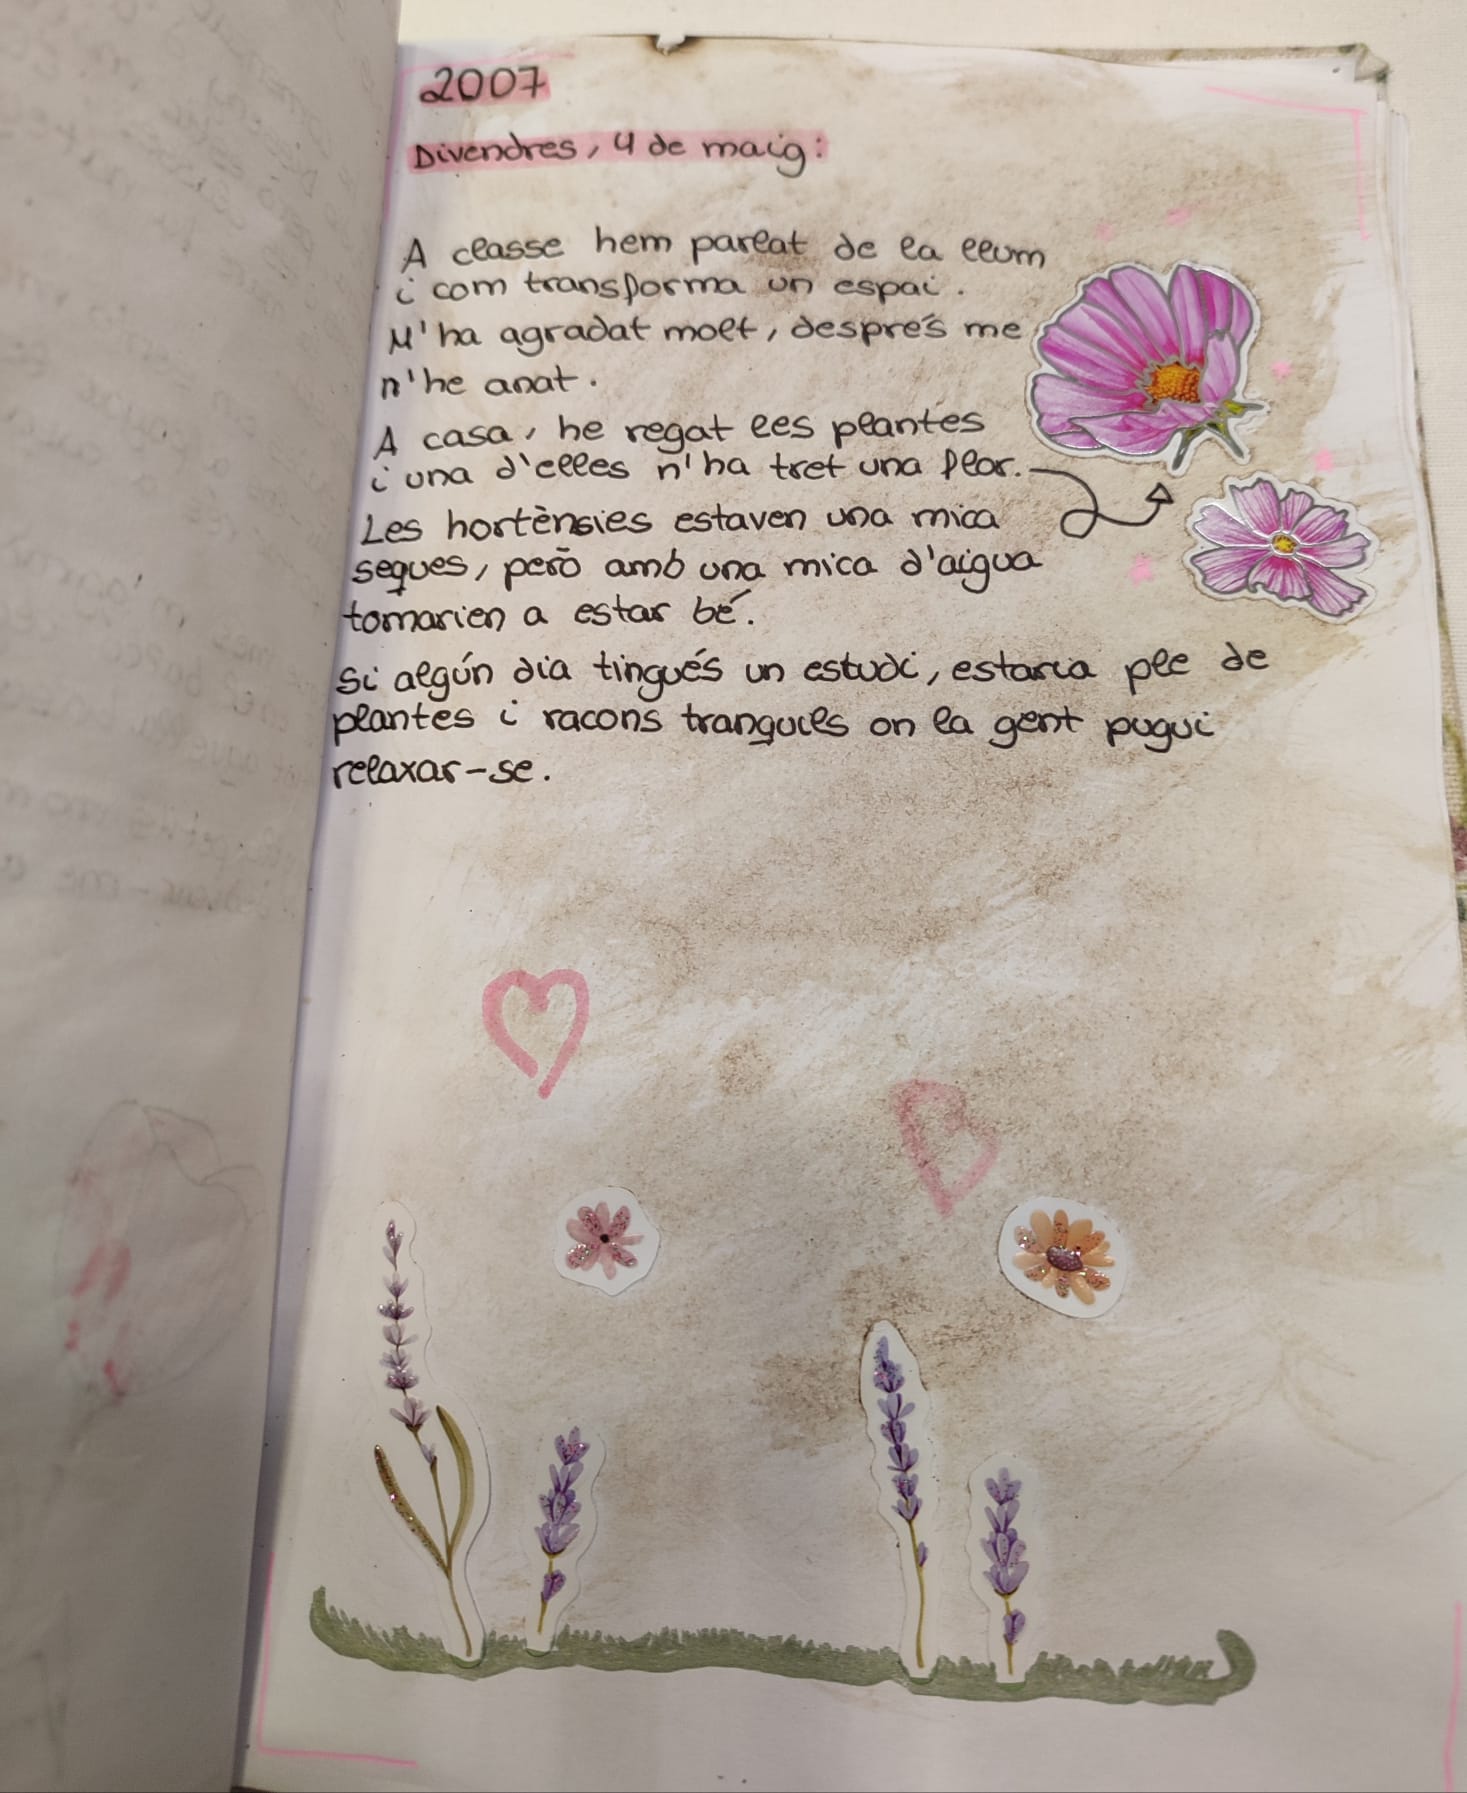 2007
Divendres, 4 de maig:
A classe hem parlat de la llum
i com transforma un espai.
M'ha agradat molt, després me
n'he anat.
A casa, he regat les plantes
i una d'elles n'ha tret una flor.
Les hortènsies estaven una mica
seques, però amb una mica d'aigua
tornarien a estar bé.
Si algún dia tingués un estudi, estaria ple de
plantes i racons tranquils on la gent pugui
relaxar-se.